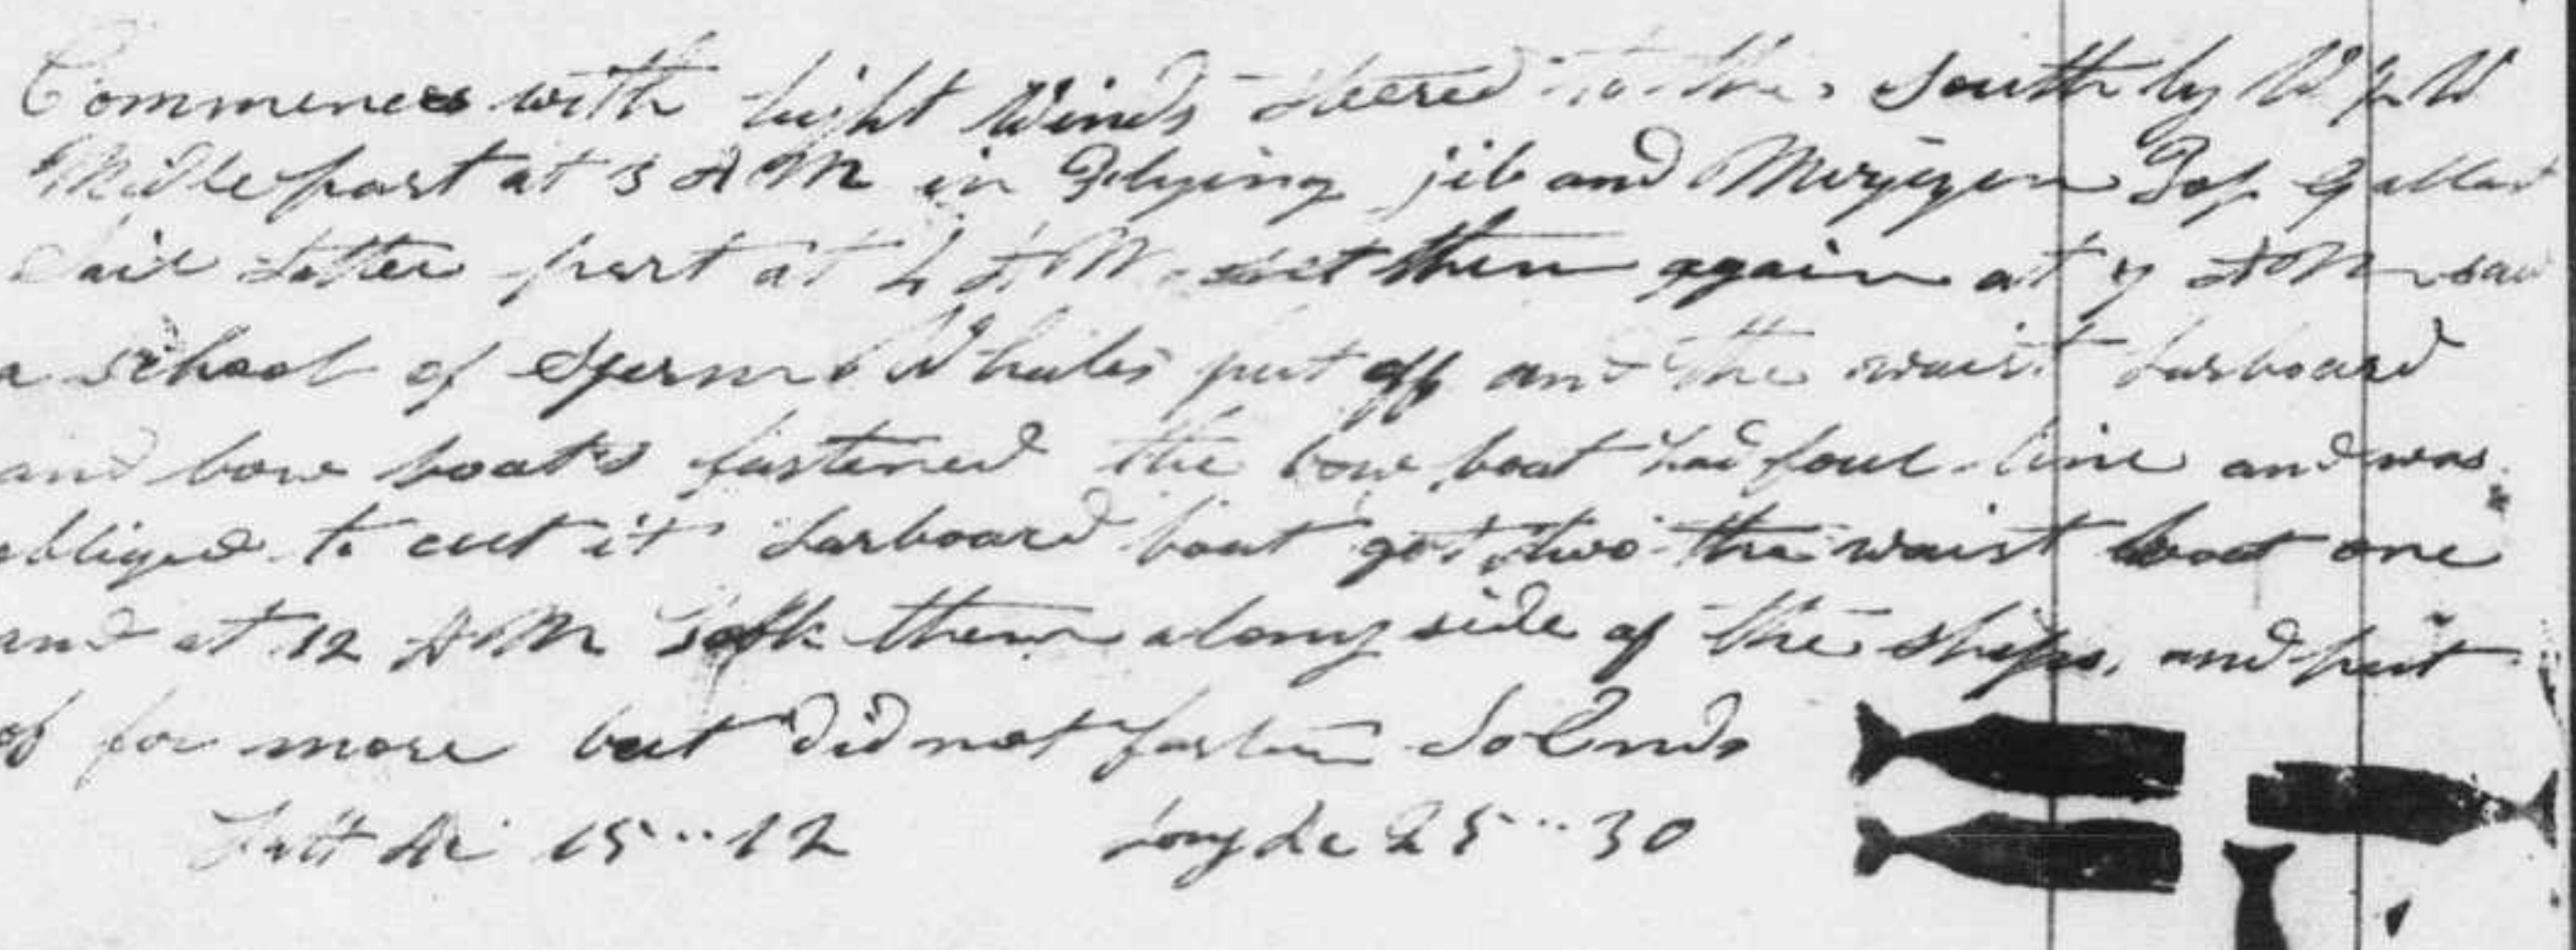 Commences with light Winds steered to the South by W ½ W
Midle part at 3 A M in Flying jib and Mizzen Top Gallant
Sail Latter part at 4 A M set them again at 7 A M saw
a school of Sperm Whales put off and the waist Larboard
and bow boats fastened the bow boat had foul line and was
obliged to cut it Larboard boat got two the waist boat one
and at 12 A M Took them along side of the ship, and put
of for more but did not fasten So Ends
Latt 15 " 12 Long 25 " 30